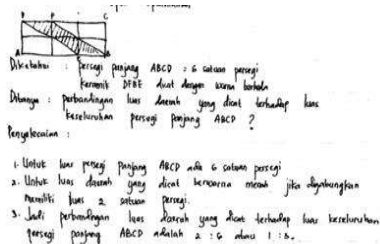 D P C
A B
Diketahui : persegi panjang ABCD = 6 satuan persegi
Keramik DFBE dicat dengan warna berbeda
Ditanya : perbandingan luas daerah yang dicat terhadap luas
keseluruhan persegi panjang ABCD ?
Penyelesaian :
1. Untuk luas persegi panjang ABCD ada 6 satuan persegi
2. Untuk luas daerah yang dicat berwarna merah jika digabungkan
memiliki luas 2 satuan persegi.
3. Jadi perbandingan luas daerah yang dicat terhadap luas keseluruhan
persegi panjang ABCD adalah 2 : 6 atau 1 : 3.